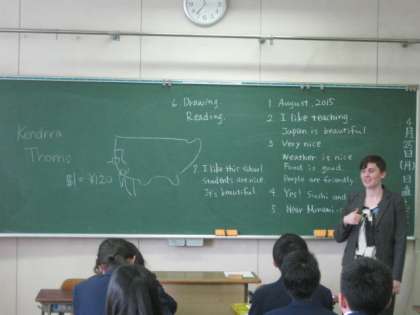 Kendrra
Thoms
$1 = ¥120
6. Drawing.
Reading.
7. I like this school
Students are nice
It's beautiful
1 August, 2015
2 I like teaching
Japan is beautiful
3 Very nice
Weather is nice
Food is good
People are friendly
4 Yes! Sushi and
5 Near
4月25日(月)日直